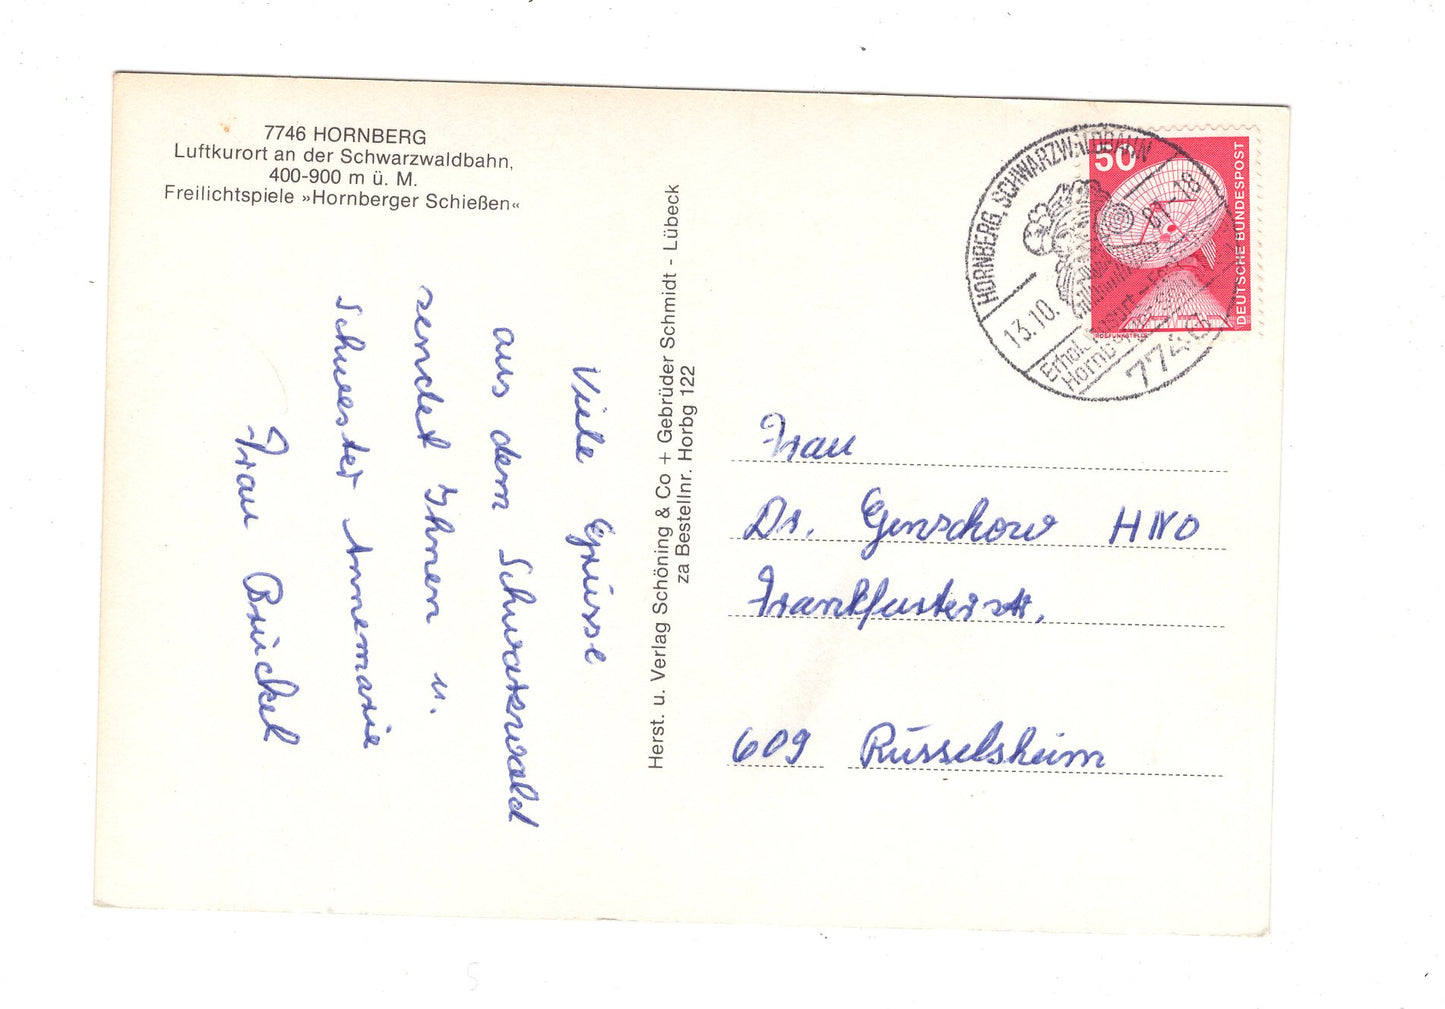 7746 HORNBERG
Luftkurort an der Schwarzwaldbahn,
400-900 m ü. M.
Freilichtspiele »Hornberger Schießen«
Viele Grüsse
aus dem Schwarzwald
sendet Ihnen u.
Schwester Annemarie
Frau Brückel
Herst. u. Verlag Schöning & Co + Gebrüder Schmidt - Lübeck
za Bestellnr. Horbg 122
HORNBERG, SCHWARZWALDBAHN
13.10. 81-18
7746
50
DEUTSCHE BUNDESPOST
Frau
Dr. Genschow HNO
Frankfusterstr.
609 Rüsselsheim